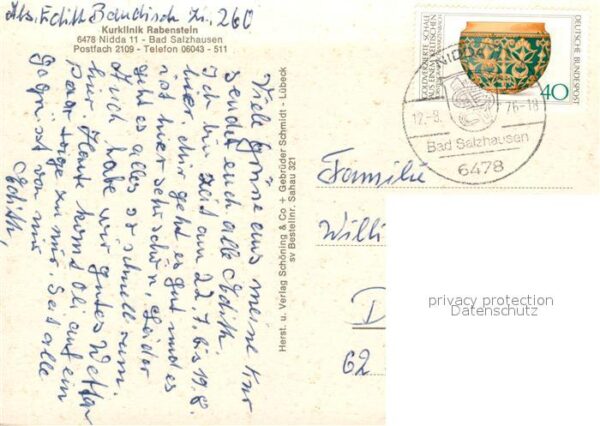 Abs. Edith Bandisch Zi. 260
Kurklinik Rabenstein
6478 Nidda 11 - Bad Salzhausen
Postfach 2109 - Telefon 06043 - 511
Viele Grüße aus meine Kur
sendet euch alle Edith.
Ich bin seit am 22.7. bis 19.8.
hier. Mir geht es gut und es
ist hier sehr schön, Leider
geht es alles so schnell rum.
Auch habe wir gutes Wetter
hier. Heute komt Oli auf ein
Paar Tage zu mir. Seit alle
gegrüst von mir
Edith,
Herst. u. Verlag Schöning & Co + Gebrüder Schmidt - Lübeck
sv Bestellnr. Sahau 321
GOLDVERZIERTE SCHALE
AUS EINEM KELTISCHEN
DEUTSCHE BUNDESPOST
40
NIDDA
12.-8. 76-18
Bad Salzhausen
6478
Familie
Willi
D
62
privacy protection
Datenschutz